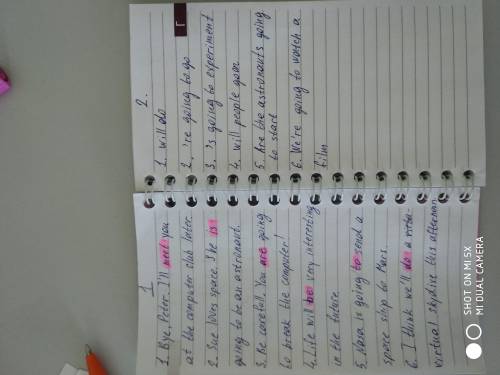 1
1. Bye, Peter. I'll meet you
at the computer club later.
2. Sue loves space. She is
going to be an astronaut.
3. Be carefull. You are going
to break the computer!
4. Life will be very interesting
in the future.
5. Nasa is going to send a
space ship to Mars.
6. I think we'll do a virtu-
virtual skydive this afternan
2.
1. will do
2. 're going to go
3. 's going to experiment
4. will people goan
5. Are the astronauts going
to start
6. We're going to watch a
film
Г
SHOT ON MI 5X
MI DUAL CAMERA